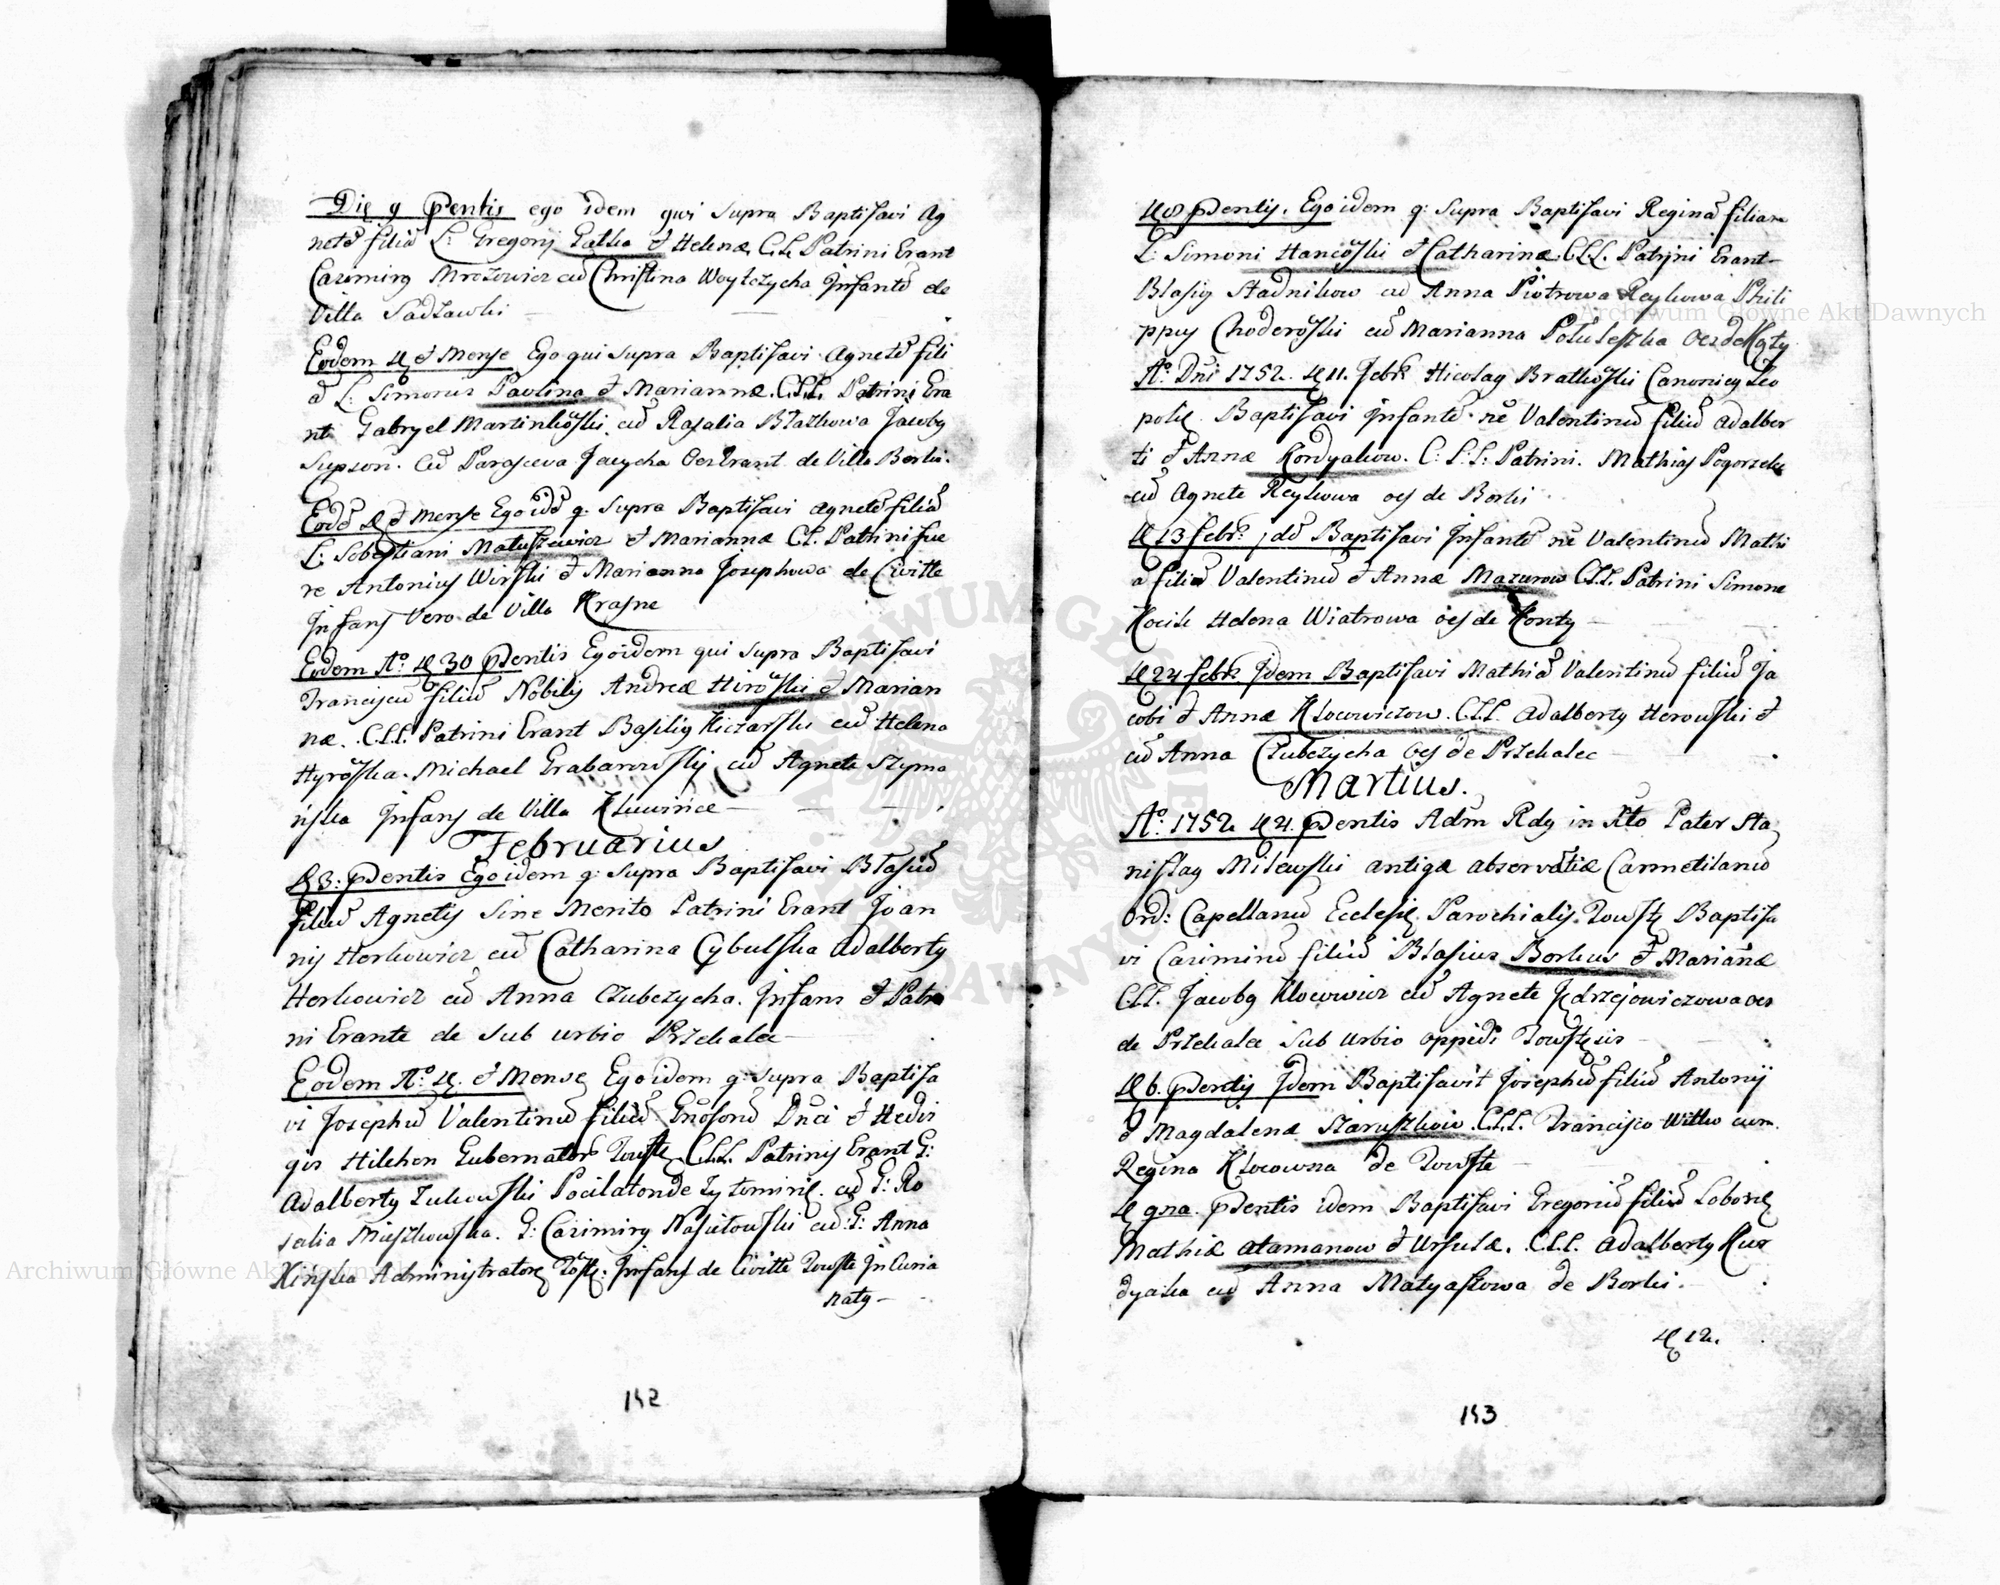 Die 9 Pbentis ego idem qui supra Baptisavi Ag
netē filiā L: Gregorij Gałka et Helenæ C.L. Patrini Erant
Casimirg Mrozowicz cū Christina Woytczycha Infante de
Villa Sadzawki
Eodem et Mense Ego qui supra Baptisavi Agnetē fili
ā L: Simonis Pavlina et Mariannæ. C.L.L. Patrini Era
nt Gabryel Martinkōski cū Rosalia Błazkowa Jacobg
Supson. Cū Parasceva Jacycha Oes Erant de Villa Borki.
Eodē et Mense Ego idē q: supra Baptisavi agnetē filiā
L: Sebestiani Matuszewicz et Mariannæ CL. Patrini fue
re Antonius Wirski et Marianna Josephowa de Civitte
Infans Vero de Villa Krasne
Eodem Aº: 30 Pbentis Ego idem qui supra Baptisavi
Franciscū filiū Nobilis Andreæ Hirōski et Marian
næ. C.L.L. Patrini Erant Basilig Kiczarski cū Helena
Hyrōska. Michael Grabarowsky cū Agnete Szyma
nska Infans de Villa Kluwińce
Februarius
3: Pbentis Ego idem q: supra Baptisavi Błasiū
filiū Agnetis Sine Merito Patrini Erant Joan
nis Herkowicz cū Catharina Cybulska Adalbertg
Herkowicz cū Anna Czubczycha. Infans et Patri
ni Erante de Sub urbio Przekalec
Eodem Aº: et Mense Ego idem q: supra Baptisa
vi Josephū Valentinū filiū Gnōsorū Dnci et Hedvi
gis Hilchen Gubernator Towste. C.L.L. Patrinis Erant G:
Adalbertg Zukowski Pocilatonde Zytomiriē. cū G: Ro
salia Mieszkowska. G: Casimirg Nasiełowski cū: G: Anna
Kinska Administratore Tōste: Infans de Civitte Towste In Curia
natg
8 Pbentis. Ego idem q: supra Baptisavi Reginā filiam
L: Simoni Hancōski et Catharinæ. C.L.L. Patrini Erant
Blasig Stadnikow cū Anna Piotrowa Reykowa Phili
ppus Choderōski cū Marianna Połuleszka Oes de Kąty
Aº: Dni 1752. 11. Febr. Nicolag Bratkōski Canonicg Leo
polie. Baptisavi Infantē nē Valentinū filiū Adalber
ti et Annæ Kordyakow. C: L: L: Patrini. Mathias Pogorzele
cū Agnete Reykowa oes de Borki
13 febr: idē Baptisavi Infantē nē Valentinū Mathi
a filiū Valentinū et Annæ Mazurow C.L.L. Patrini Simone
Kocik Helena Wiatrowa oes de Konty
24 febr. Idem Baptisavi Mathiā Valentinū filiū Ja
cobi et Annæ Klocowiczow. C.L.L. Adalbertg Herowski et
cū Anna Czubczycha Oes de Przekalec
Martius.
Aº: 1752 4. Pbentis Adm Rdg in Xto Pater Sta
nislag Milewski antiqæ observātiæ Carmelitanū
Ord: Capellanū Ecclesię Parochialis. Towstę Baptisa
vi Casimirū filiū Błasius Borkus et Mariañæ
C.L.L. Jacobg Klocowicz cū Agnete Jędrzejowiczowa oes
de Przekalec Sub Urbio oppidi Towstęsis
6. Pbentis Idem Baptisavit Josephū filiū Antonij
et Magdalenæ Staruszkow. C.L.L. Francisco Witko cum.
Regina Klocowna de Towste
9na. Pbentis idem Baptisavi Gregoriū filiū Laborię
Mathiæ Atamanow et Ursulæ. C.L.L. Adalbertg Kur
dyaka cū Anna Matyaszowa de Borki.
12.
152
153
Archiwum Główne Akt Dawnych
Archiwum Główne Akt Dawnych
ARCHIWUM GŁÓWNE AKT DAWNYCH